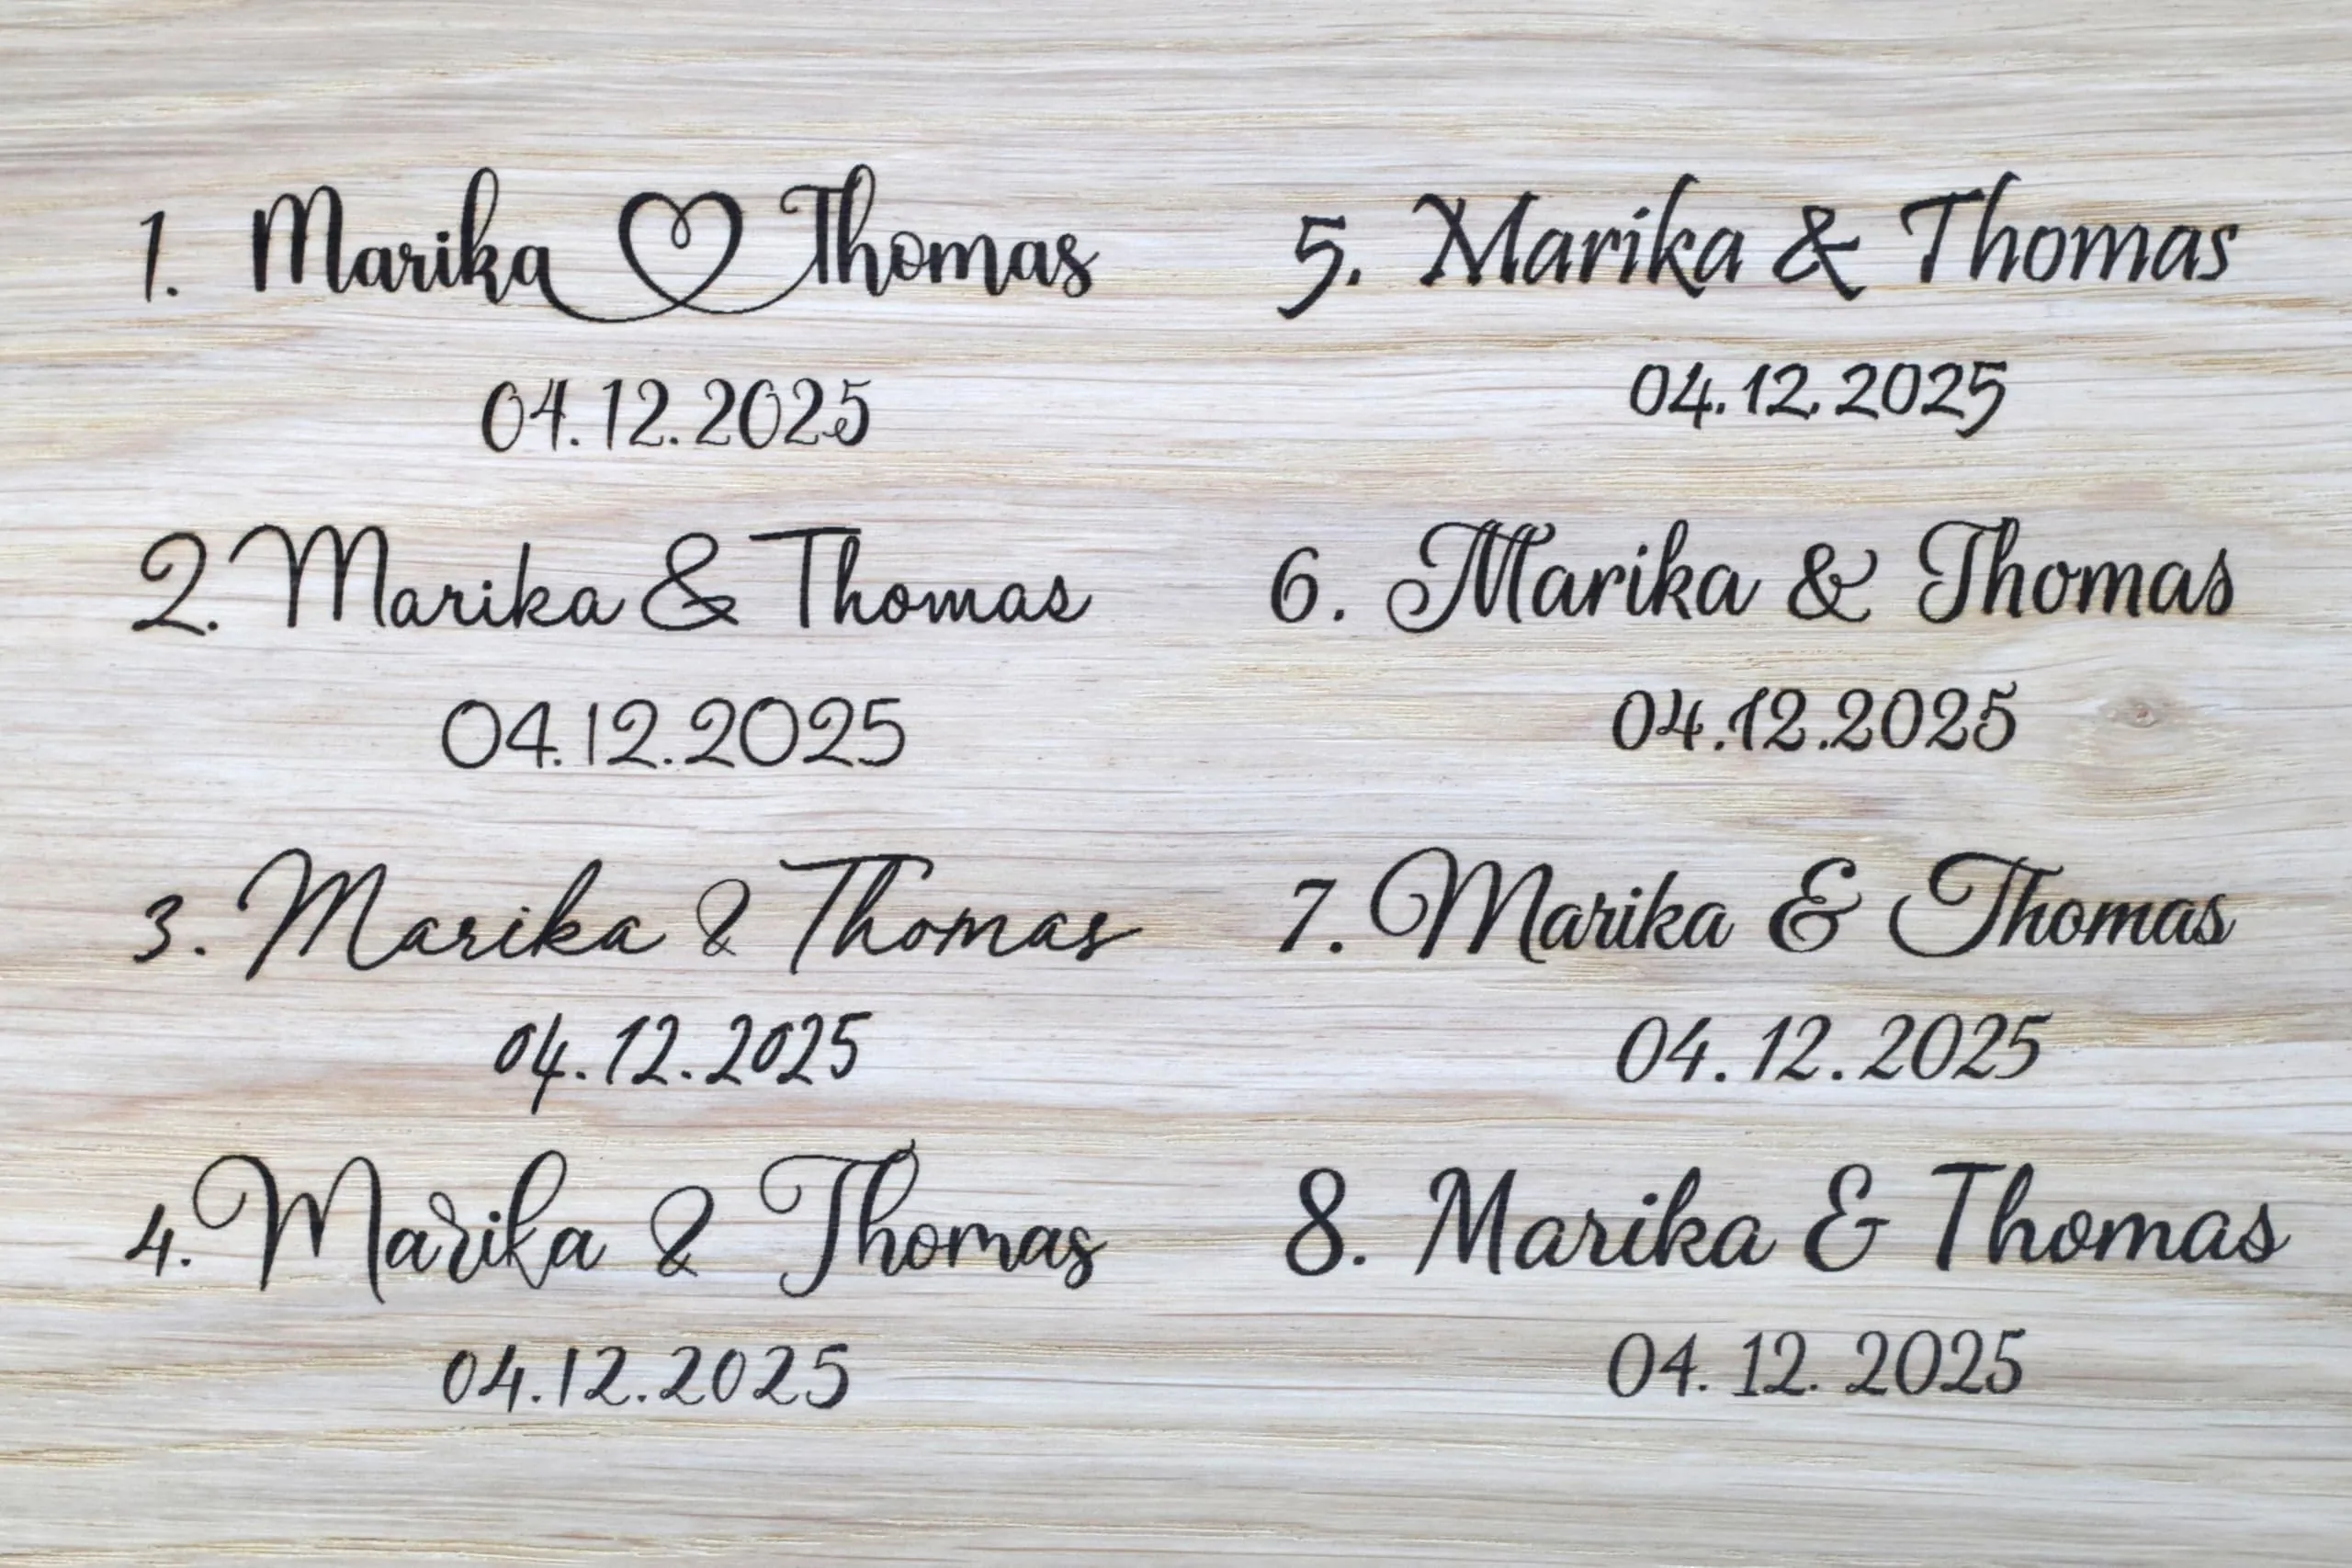 1. Marika ♡ Thomas
04.12.2025
2. Marika & Thomas
04.12.2025
3. Marika & Thomas
04.12.2025
4. Marika & Thomas
04.12.2025
5. Marika & Thomas
04.12.2025
6. Marika & Thomas
04.12.2025
7. Marika & Thomas
04.12.2025
8. Marika & Thomas
04.12.2025